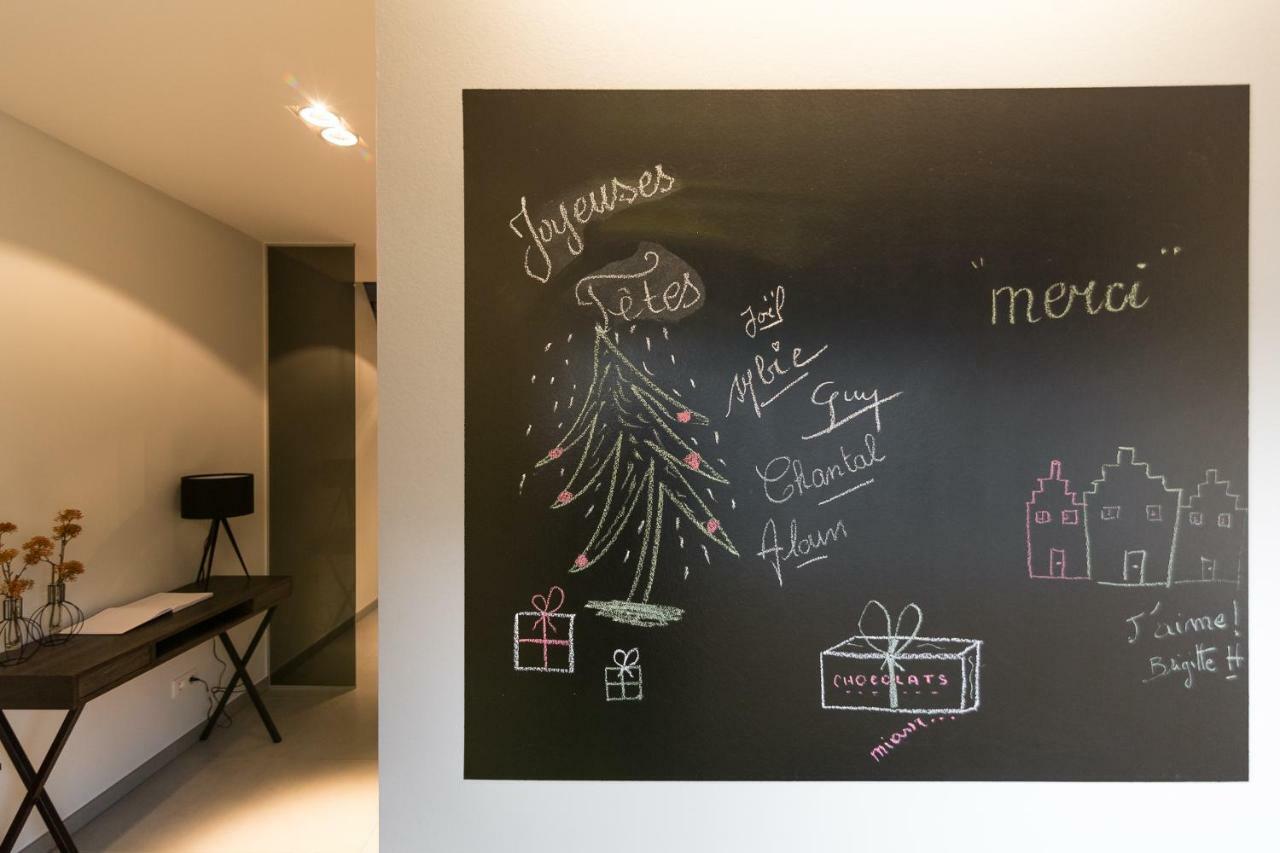 Joyeuses
Fêtes
Joël
Sylvie
Guy
Chantal
Alain
"merci"
CHOCOLATS
miam...
J'aime!
Brigitte H